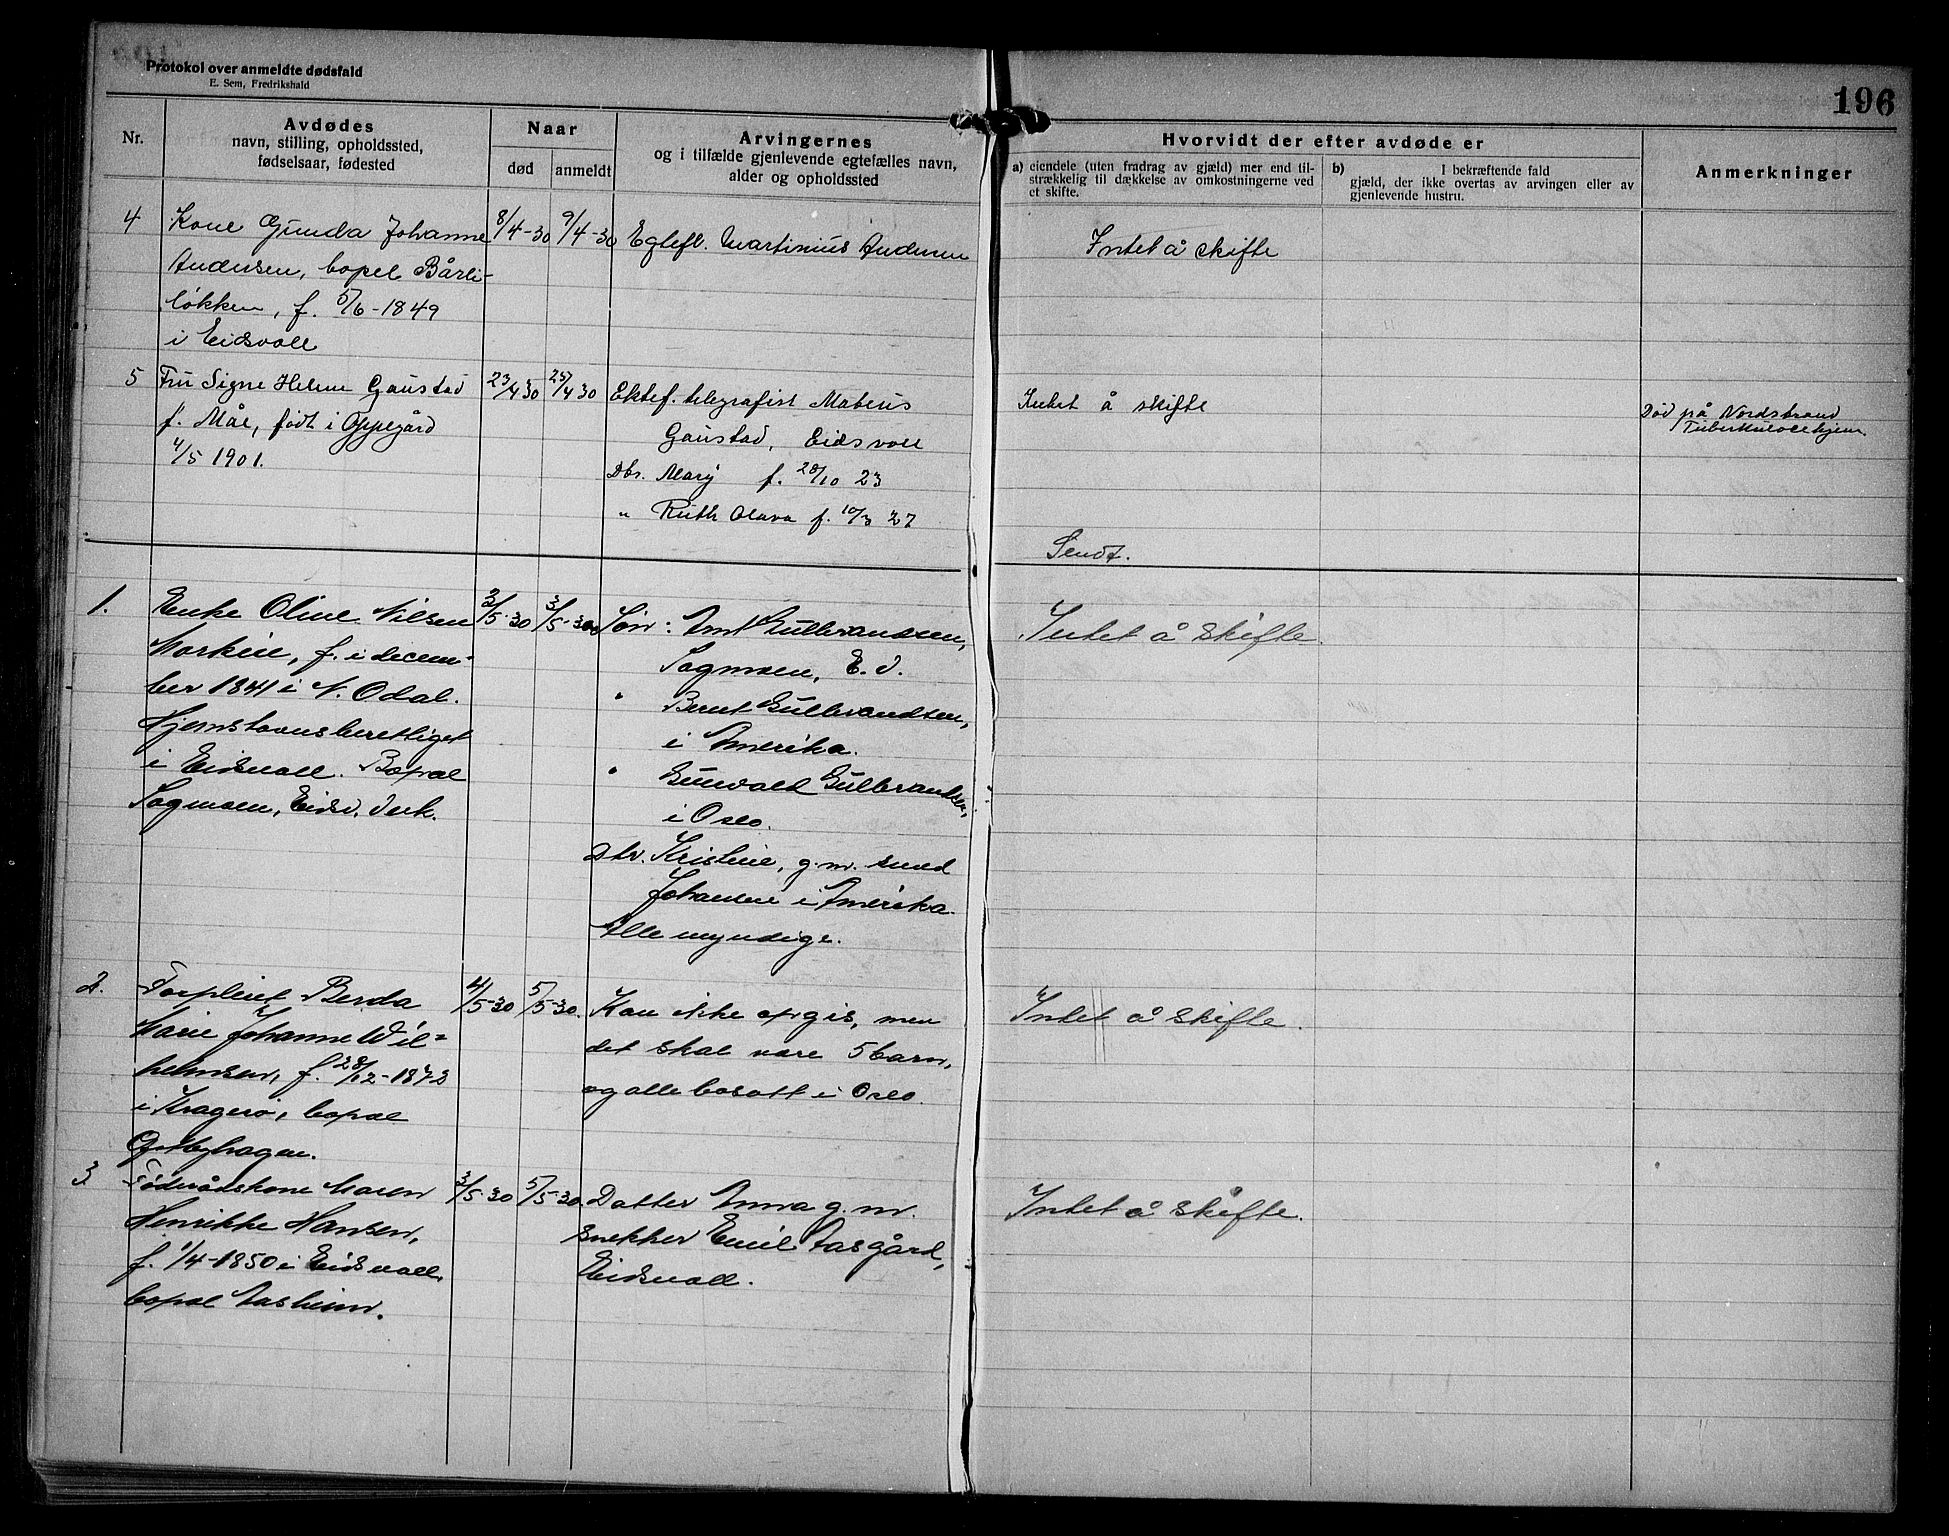 Protokol over anmeldte dødsfald
E. Sem, Fredrikshald
196
Nr.
Avdødes
navn, stilling, opholdssted,
fødselsaar, fødested
Naar
død
anmeldt
Arvingernes
og i tilfælde gjenlevende egtefælles navn,
alder og opholdssted
Hvorvidt der efter avdøde er
a) eiendele (uten fradrag av gjæld) mer end til-
strækkelig til dækkelse av omkostningerne ved
et skifte.
b) I bekræftende fald
gjæld, der ikke overtas av arvingen eller av
gjenlevende hustru.
Anmerkninger
4 Kone Gunda Johanne 8/4-30 9/4-30 Egtefl. Martinius Andersen Intet å skifte
Andersen, bopel Bårli-
løkken, f. 5/6-1849
i Eidsvoll
5 Fru Signe Helene Gaustad 23/4 30 25/4 30 Ektef. telegrafist Mateus Intet å skifte Død på Nordstrand
f. Måe, født i Oppegård Gaustad, Eidsvoll Tuberkulosehjem
4/5 1901. Dtr. Mary f. 28/10 23
" Ruth Olava f. 10/3 27
Sendt.
1. Enke Oline Nilsen 3/5-30 3/5-30 Sønn: Amt Gulbrandsen, Intet å skifte.
f. i decem- Sagmoen, E. v.
ber 1841 i N. Odal. " Bernt Gulbrandsen,
Hjemstavnsberettiget i Amerika.
i Eidsvoll. Bopæl " Gunvald Gulbrandsen,
Sagmoen, Eidsv. verk. i Oslo.
Dtr. Kristine, g. m. smed
Johansen i Amerika.
Alle myndige.
2. Forpleiet Berda 4/5-30 5/5-30. Kan ikke opgis, men Intet å skifte.
Marie Johanne Wil- det skal være 5 barn,
helmsen, f. 28/12-1873 og alle bosatt i Oslo.
i Kragerø, bopæl
3 Føderådskone Maren 3/5-30 5/5-30. Datter Anna g. m. Intet å skifte.
Henrikke Hansen, snekker Emil Aasgård,
f. 1/4-1850 i Eidsvoll, Eidsvoll.
bopæl Aasheim.